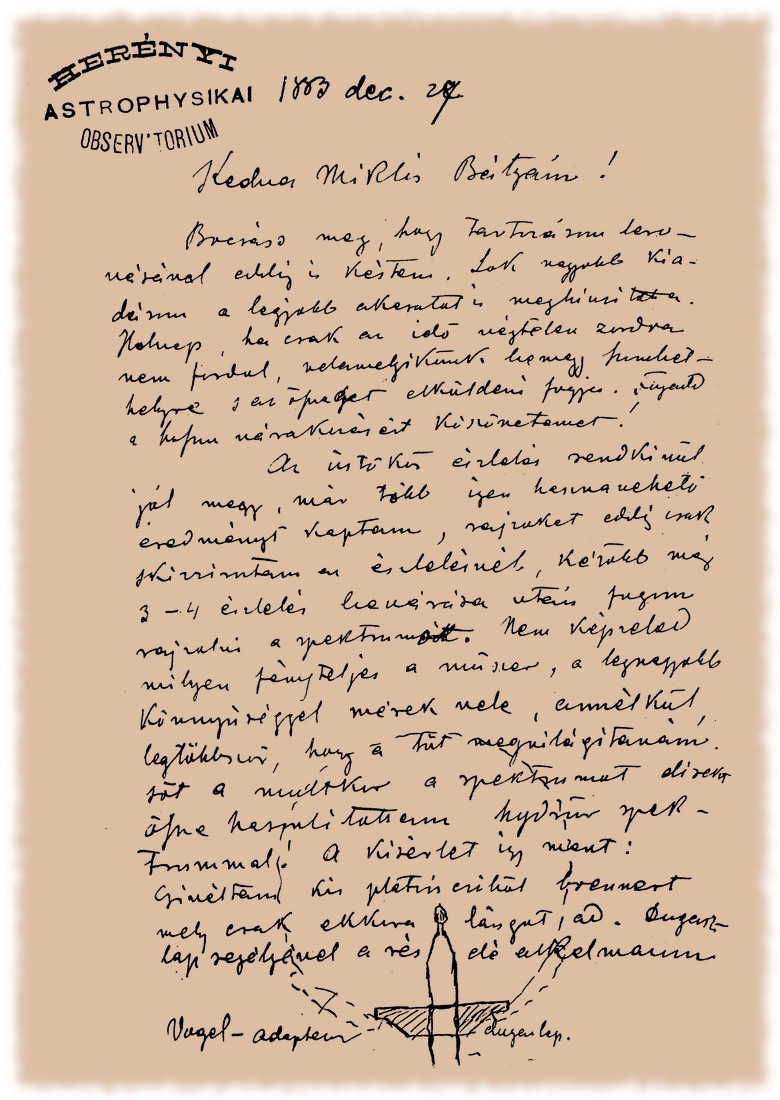 HERÉNYI
ASTROPHYSIKAI
OBSERV'TORIUM
1883 dec. 27.
Kedves Miklós Bátyám !
Bocsáss meg, hogy tartozásom lero-
vásával eddig is késtem. Sok nagyobb kia-
dásom a legjobb akaratot is meghiusitotta.
Holnap, ha csak az idő végtelen zordra
nem fordul, valamelyikünk bemegy Szombat-
helyre s az összeget elküldeni fogja. Fogadd
a várakozásért köszönetemet !
Az üstökös észlelés rendkivül
jól megy, már több igen hasznavehető
eredményt kaptam, rajzokat eddig csak
skizziroztam az észlelésnél, később még
3 – 4 észlelés bevárása után fogom
rajzolni a spektrumot. Nem képzeled
milyen fényteljes a műszer, a legnagyobb
könnyűséggel mérek vele, annélkül,
legtöbbször, hogy a tűt megvilágitanám.
sőt a multkor a spektrumot direkt
össze hasonlitottam hydrür spek-
trummal! A kisérlet igy ment:
Csináltam kis platin csiből brennert
mely csak ekkora lángot ad. Dugasz-
lap segélyével a rés elé alkalmazom
Vogel – adapteur
dugaszlap.